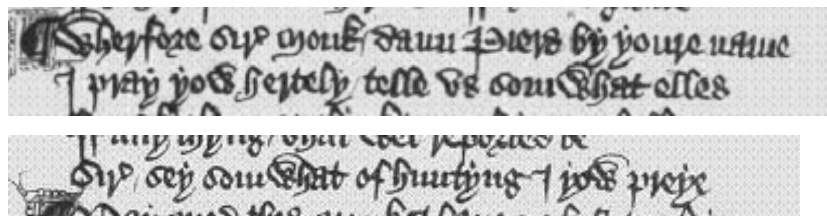 Wherfore Sire monk daun Piers by youre name
I pray yow hertely telle vs somwhat elles
Sire sey somwhat of huntyng I yow preye